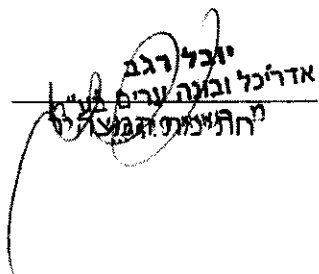 יובל רגב
אדריכל ובונה ערים בע"מ
חתימת